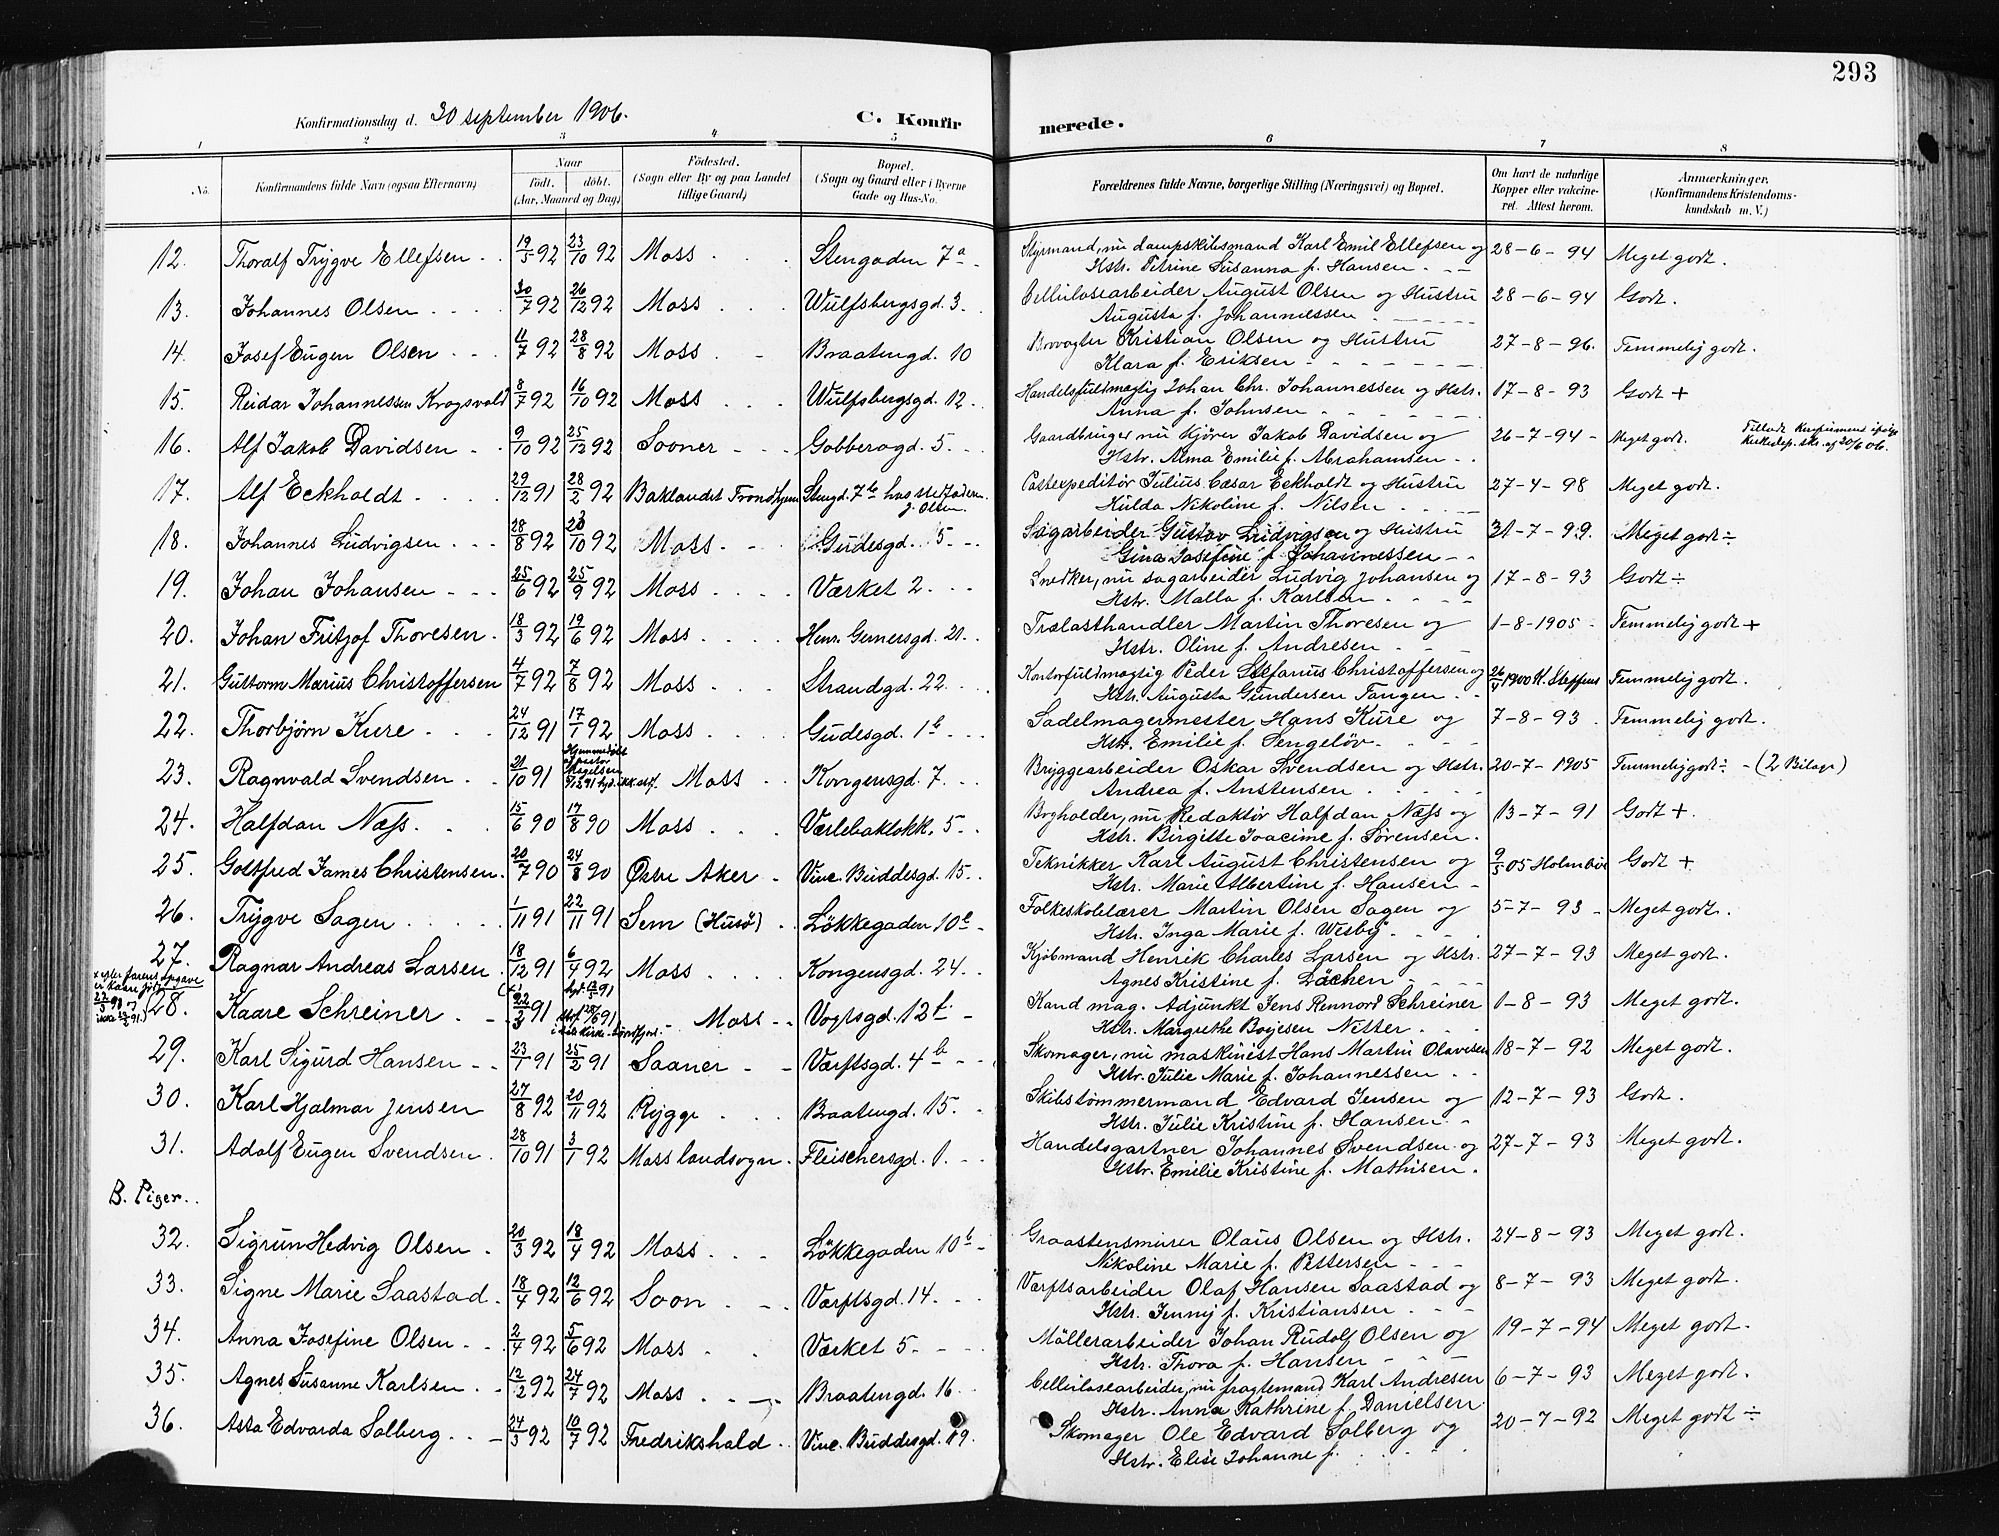 293
Konfirmationsdag d. 30 september 1906.
C. Konfirmerede.
1 2 3 4 5 6 7 8
No. Konfirmandens fulde Navn (ogsaa Efternavn) Naar födt. döbt. (Aar, Maaned og Dag) Födested. (Sogn eller By og paa Landet tillige Gaard) Bopæl. (Sogn og Gaard eller i Byerne Gade og Hus-No. Forældrenes fulde Navne, borgerlige Stilling (Næringsvei) og Bopæl. Om havt de naturlige Kopper eller vakcineret. Attest herom. Anmærkninger. (Konfirmandens Kristendomskundskab m. V.)
12. Thoralf Trygve Ellefsen 19/5 92 23/10 92 Moss Stengaden 7a Styrmand, nu dampskibsmand Karl Emil Ellefsen og 28-6-94 Meget godt.
Hstr. Petrine Susanna f. Hansen
13. Johannes Olsen 30/7 92 26/12 92 Moss Wulfsbergsgd. 3. Cellulosearbeider August Olsen og Hustru 28-6-94 Godt.
Augusta f. Johannessen
14. Josef Eugen Olsen 11/7 92 28/8 92 Moss Braatengd. 10 Brovogter Kristian Olsen og Hustru 27-8-96. Temmelig godt.
Klara f. Eriksen
15. Reidar Johannessen Krogsvold 8/7 92 16/10 92 Moss Wulfsbergsgd. 12 Handelsfuldmægtig Johan Chr. Johannessen og Hstr. 17-8-93 Godt +
Anna f. Johnsen
16. Alf Jakob Davidsen 9/10 92 25/12 92 Sooner Gobberogd. 5 Gaardbruger nu Kjörer Jakob Davidsen og 26-7-94 Meget godt. Tilladt konfirmeret ifölge Kirkedep. skr. af 20/6 06.
Hstr. Alma Emilie f. Abrahamsen
17. Alf Eckholdt 29/12 91 28/2 92 Baklandet Trondhjem Stengd. 7b hos stedfaderen J. Olsen. Postexpeditör Julius Cæsar Eckholdt og Hustru 27-4-98 Meget godt.
Hulda Nikoline f. Nilsen
18. Johannes Ludvigsen 28/8 92 23/10 92 Moss Gudesgd. 5 Sagarbeider Gustav Ludvigsen og Hustru 31-7-99. Meget godt ÷
Gina Josefine f. Johannessen
19. Johan Johansen 25/6 92 25/9 92 Moss Værket 2 Snedker, nu sagarbeider Ludvig Johansen og 17-8-93 Godt ÷
Hstr. Malla f. Karlsen
20. Johan Fritjof Thoresen 18/3 92 19/6 92 Moss Henr. Gernersgd. 21 Trælasthandler Martin Thoresen og 1-8-1905 Temmelig godt +
Hstr. Oline f. Andresen
21. Guttorm Marius Christoffersen 4/7 92 7/8 92 Moss Strandgd. 22 Kontorfuldmægtig Peder Stefanus Christoffersen og 26/4 1900 K. Steffens Temmelig godt.
Hstr. Augusta Gundersen Tangen
22. Thorbjørn Kure 24/12 91 17/1 92 Moss Gudesgd. 1b Sadelmagermester Hans Kure og 7-8-93 Temmelig godt.
Hstr. Emilie f. Sengelöv
23. Ragnvald Svendsen 21/10 91 Hjemmedöbt af pastor Moss Kongensgd. 7 Bryggearbeider Oskar Svendsen og Hstr. 20-7-1905 Temmelig godt ÷ (2 Bilage)
Andrea f. Anstensen
24. Halfdan Næss 15/6 90 17/8 90 Moss Værlebaklokk. 5 Bogholder, nu Redaktør Halfdan Næss og 13-7-91 Godt +
Hstr. Birgitte Joacime f. Sørensen.
25. Gottfred James Christensen 20/7 90 24/8 90 Østre Aker Vinc. Buddesgd. 15 Teknikker Karl August Christensen og 9/5 05 Holmboe Godt +
Hstr. Marie Albertine f. Hansen
26. Trygve Sagen 1/11 91 22/11 91 Sem (Husö) Løkkegaden 10b Folkeskolelærer Martin Olsen Sagen og 5-7-93 Meget godt.
Hstr. Inga Marie f. Wesby
27. Ragnar Andreas Larsen 18/12 91 6/4 92 Moss Kongensgd. 24 Kjøbmand Henrik Charles Larsen og Hstr. 27-7-93 Meget godt.
Agnes Kristine f. Löchen
x efter farens opgave er Kaare født 22/3 91 og ikke 22/2 91.)
28. Kaare Schreiner 22/3 91 Moss Vogtsgd. 12b Kand mag. Adjunkt Jens Rennord Schreiner 1-8-93 Meget godt.
Hstr. Margrethe Bojesen Netter
29. Karl Sigurd Hansen 23/1 91 25/2 91 Saaner Værftsgd. 4b Skomager, nu maskinist Hans Martin Olavesen 18-7-92 Meget godt.
Hstr. Julie Marie f. Johannessen
30. Karl Hjalmar Jensen 27/8 92 20/11 92 Rygge Braatengd. 15 Skibstømmermand Edvard Jensen og 12-7-93 Godt.
Hstr. Julie Kristine f. Hansen
31. Adolf Eugen Svendsen 28/10 91 3/1 92 Moss landsogn Fleischersgd. 1 Handelsgartner Johannes Svendsen og 27-7-93 Meget godt.
Hstr. Emilie Kristine f. Mathisen.
B. Piger.
32. Sigrun Hedvig Olsen 20/3 92 18/4 92 Moss Løkkegaden 10b Graastensmurer Olaus Olsen og Hstr. 24-8-93 Meget godt.
Nikoline Marie f. Pettersen
33. Signe Marie Saastad 18/4 92 12/6 92 Soon Værftsgd. 14 Værftsarbeider Olaf Hansen Saastad og 8-7-93 Meget godt.
Hstr. Jenny f. Kristiansen
34. Anna Josefine Olsen 2/4 92 5/6 92 Moss Værket 5 Möllerarbeider Johan Rudolf Olsen og 19-7-94 Meget godt.
Hstr. Thora f. Hansen
35. Agnes Susanne Karlsen 12/2 92 24/7 92 Moss Braatengd. 16 Cellulosearbeider, nu fragtemand Karl Andresen 6-7-93 Meget godt.
Hstr. Anna Kathrine f. Danielsen
36. Asta Edvarda Solberg 24/3 92 10/7 92 Fredrikshald Vinc. Buddesgd. 19. Skomager Ole Edvard Solberg og 20-7-92 Meget godt ÷
Hstr. Elise Johanne f.